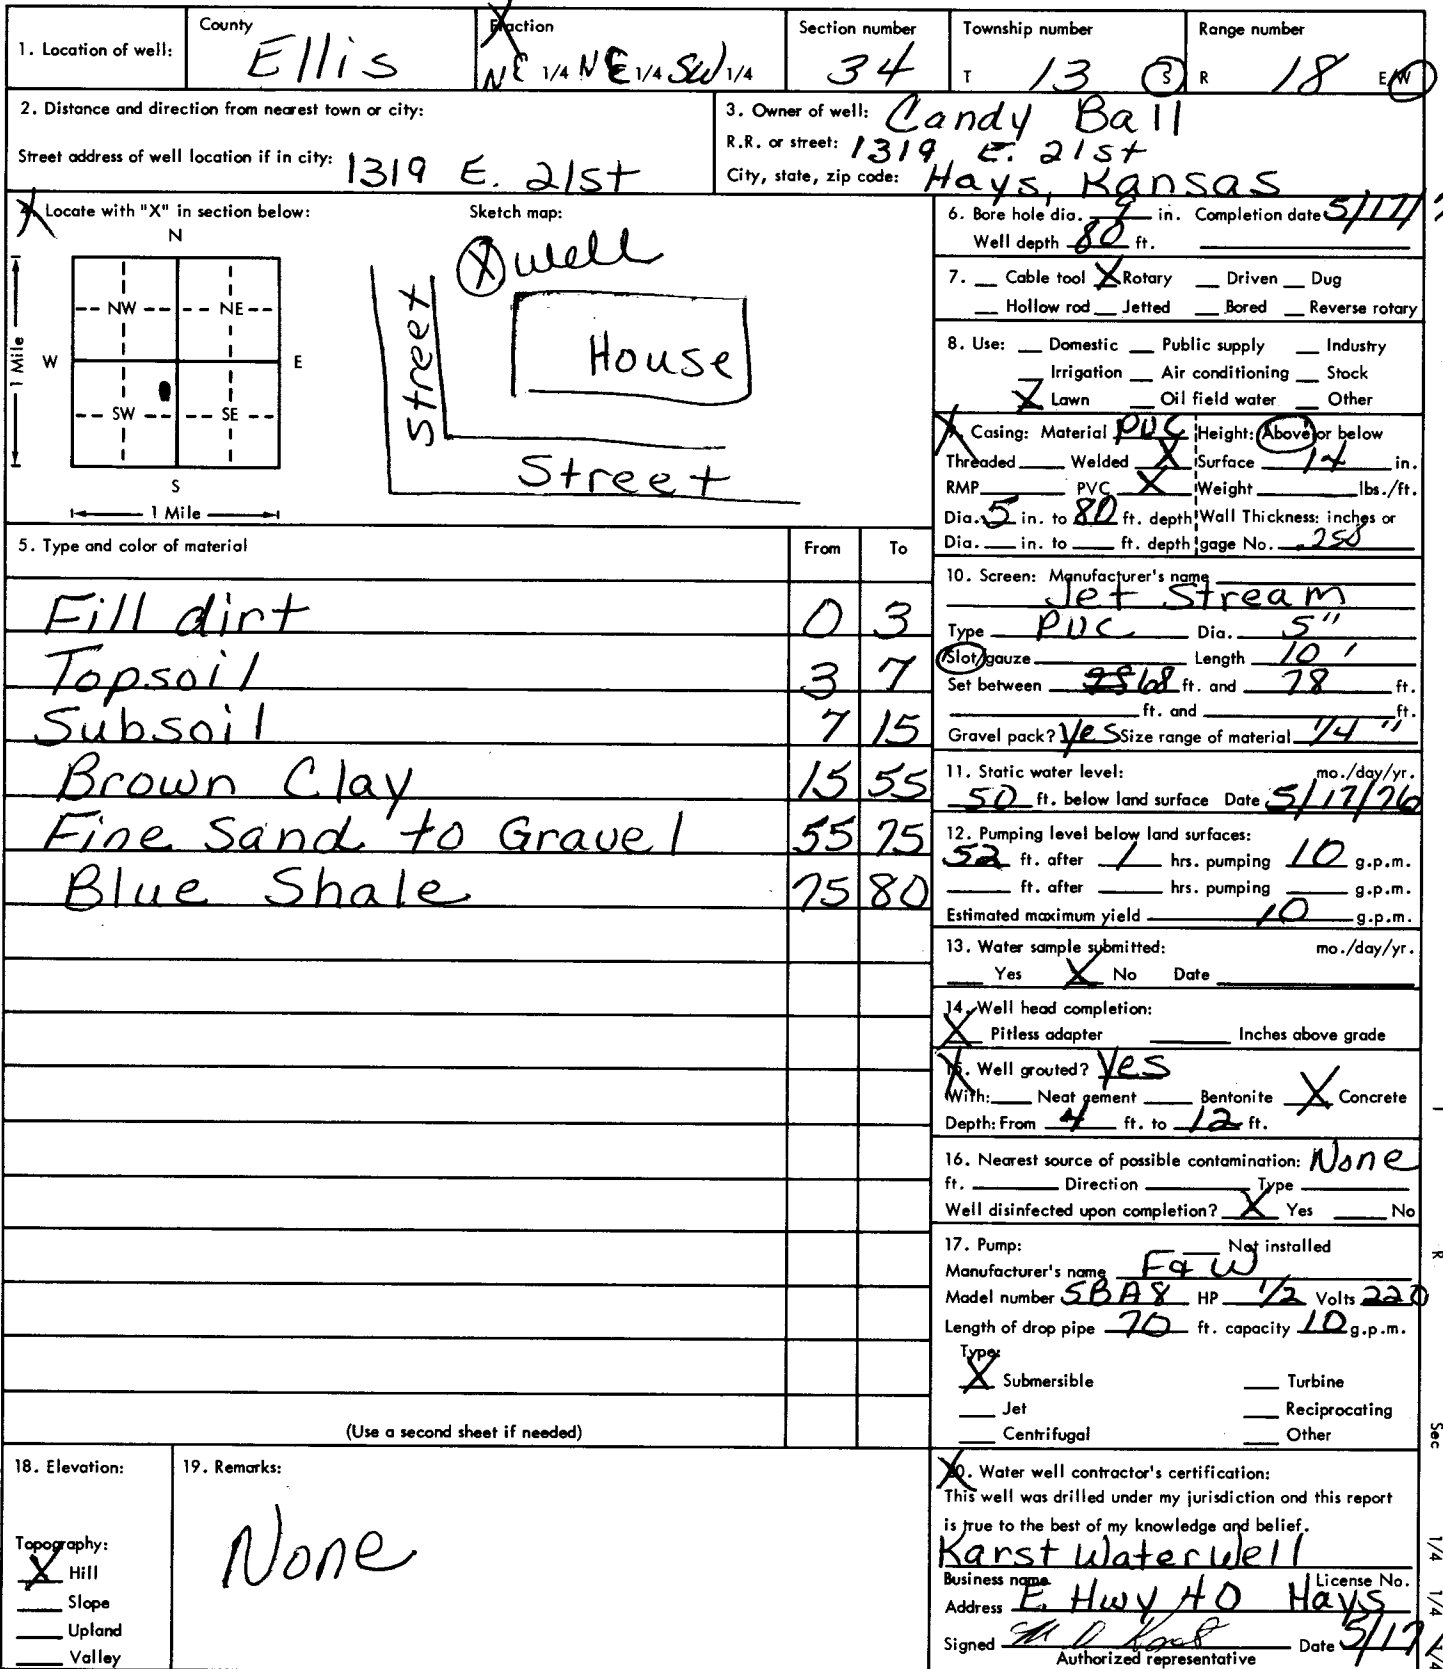 County Fraction Section number Township number Range number
1. Location of well: Ellis NE 1/4 NE 1/4 SW 1/4 34 T 13 S R 18 E/W
2. Distance and direction from nearest town or city:
Street address of well location if in city: 1319 E. 21st
3. Owner of well: Candy Ball
R.R. or street: 1319 E. 21st
City, state, zip code: Hays, Kansas
Locate with "X" in section below: Sketch map:
N
NW NE
W E
SW SE
S
1 Mile
1 Mile
X well
House
Street
Street
5. Type and color of material From To
Fill dirt 0 3
Topsoil 3 7
Subsoil 7 15
Brown Clay 15 55
Fine Sand to Gravel 55 75
Blue Shale 75 80
(Use a second sheet if needed)
18. Elevation:
Topography:
X Hill
Slope
Upland
Valley
19. Remarks:
None
6. Bore hole dia. 9 in. Completion date 5/17/7
Well depth 80 ft.
7. Cable tool X Rotary Driven Dug
Hollow rod Jetted Bored Reverse rotary
8. Use: Domestic Public supply Industry
Irrigation Air conditioning Stock
X Lawn Oil field water Other
Casing: Material PVC Height: Above or below
Threaded Welded X Surface 14 in.
RMP PVC X Weight lbs./ft.
Dia. 5 in. to 80 ft. depth Wall Thickness: inches or
Dia. in. to ft. depth gage No. .250
10. Screen: Manufacturer's name
Jet Stream
Type PVC Dia. 5"
Slot/gauze Length 10'
Set between 68 ft. and 78 ft.
ft. and ft.
Gravel pack? Yes Size range of material 1/4"
11. Static water level: mo./day/yr.
50 ft. below land surface Date 5/17/76
12. Pumping level below land surfaces:
52 ft. after 1 hrs. pumping 10 g.p.m.
ft. after hrs. pumping g.p.m.
Estimated maximum yield 10 g.p.m.
13. Water sample submitted: mo./day/yr.
Yes X No Date
14. Well head completion:
X Pitless adapter Inches above grade
15. Well grouted? Yes
With: Neat cement Bentonite X Concrete
Depth: From 4 ft. to 12 ft.
16. Nearest source of possible contamination: None
ft. Direction Type
Well disinfected upon completion? X Yes No
17. Pump: Not installed
Manufacturer's name F&W
Model number 5BA8 HP 1/2 Volts 220
Length of drop pipe 70 ft. capacity 10 g.p.m.
Type:
X Submersible Turbine
Jet Reciprocating
Centrifugal Other
20. Water well contractor's certification:
This well was drilled under my jurisdiction and this report
is true to the best of my knowledge and belief.
Karst Water Well
Business name License No.
Address E. Hwy 40 Hays
Signed Date 5/17
Authorized representative
R
Sec
1/4 1/4 1/4